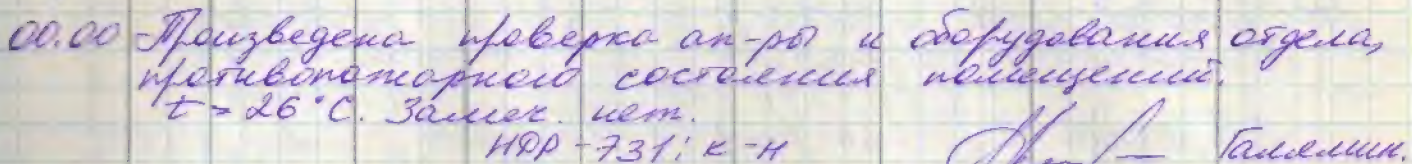 00.00 Произведена проверка ап-ры и оборудования отдела,
противопожарного состояния помещений.
t = 26°C. Замеч. нет.
НДР-731: к-н